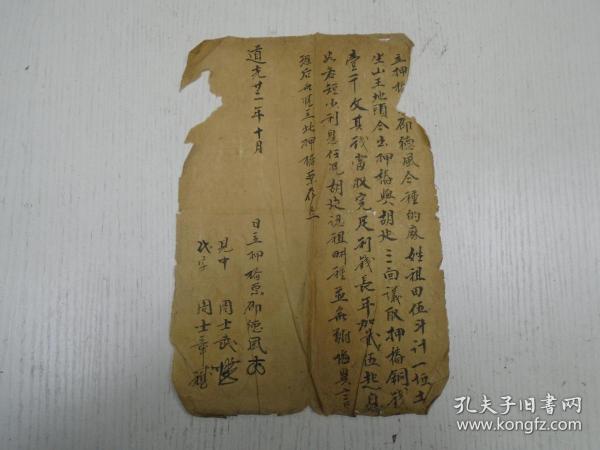 立押樁 邵德風今種的麻姓祖田伍斗計一坵土
坐山王地頭今出押樁與胡処三面議取押樁銅錢
壹千文其錢當收完足利錢長年加貳伍起息
如若短少利息任凭胡処退祖畊種並無翻悔異言
恐后無凭立此押樁票存照
道光廿一年十月 日立押樁票邵德風
見中 周士武
代字 周士章
孔夫子旧书网
www.kongfz.com